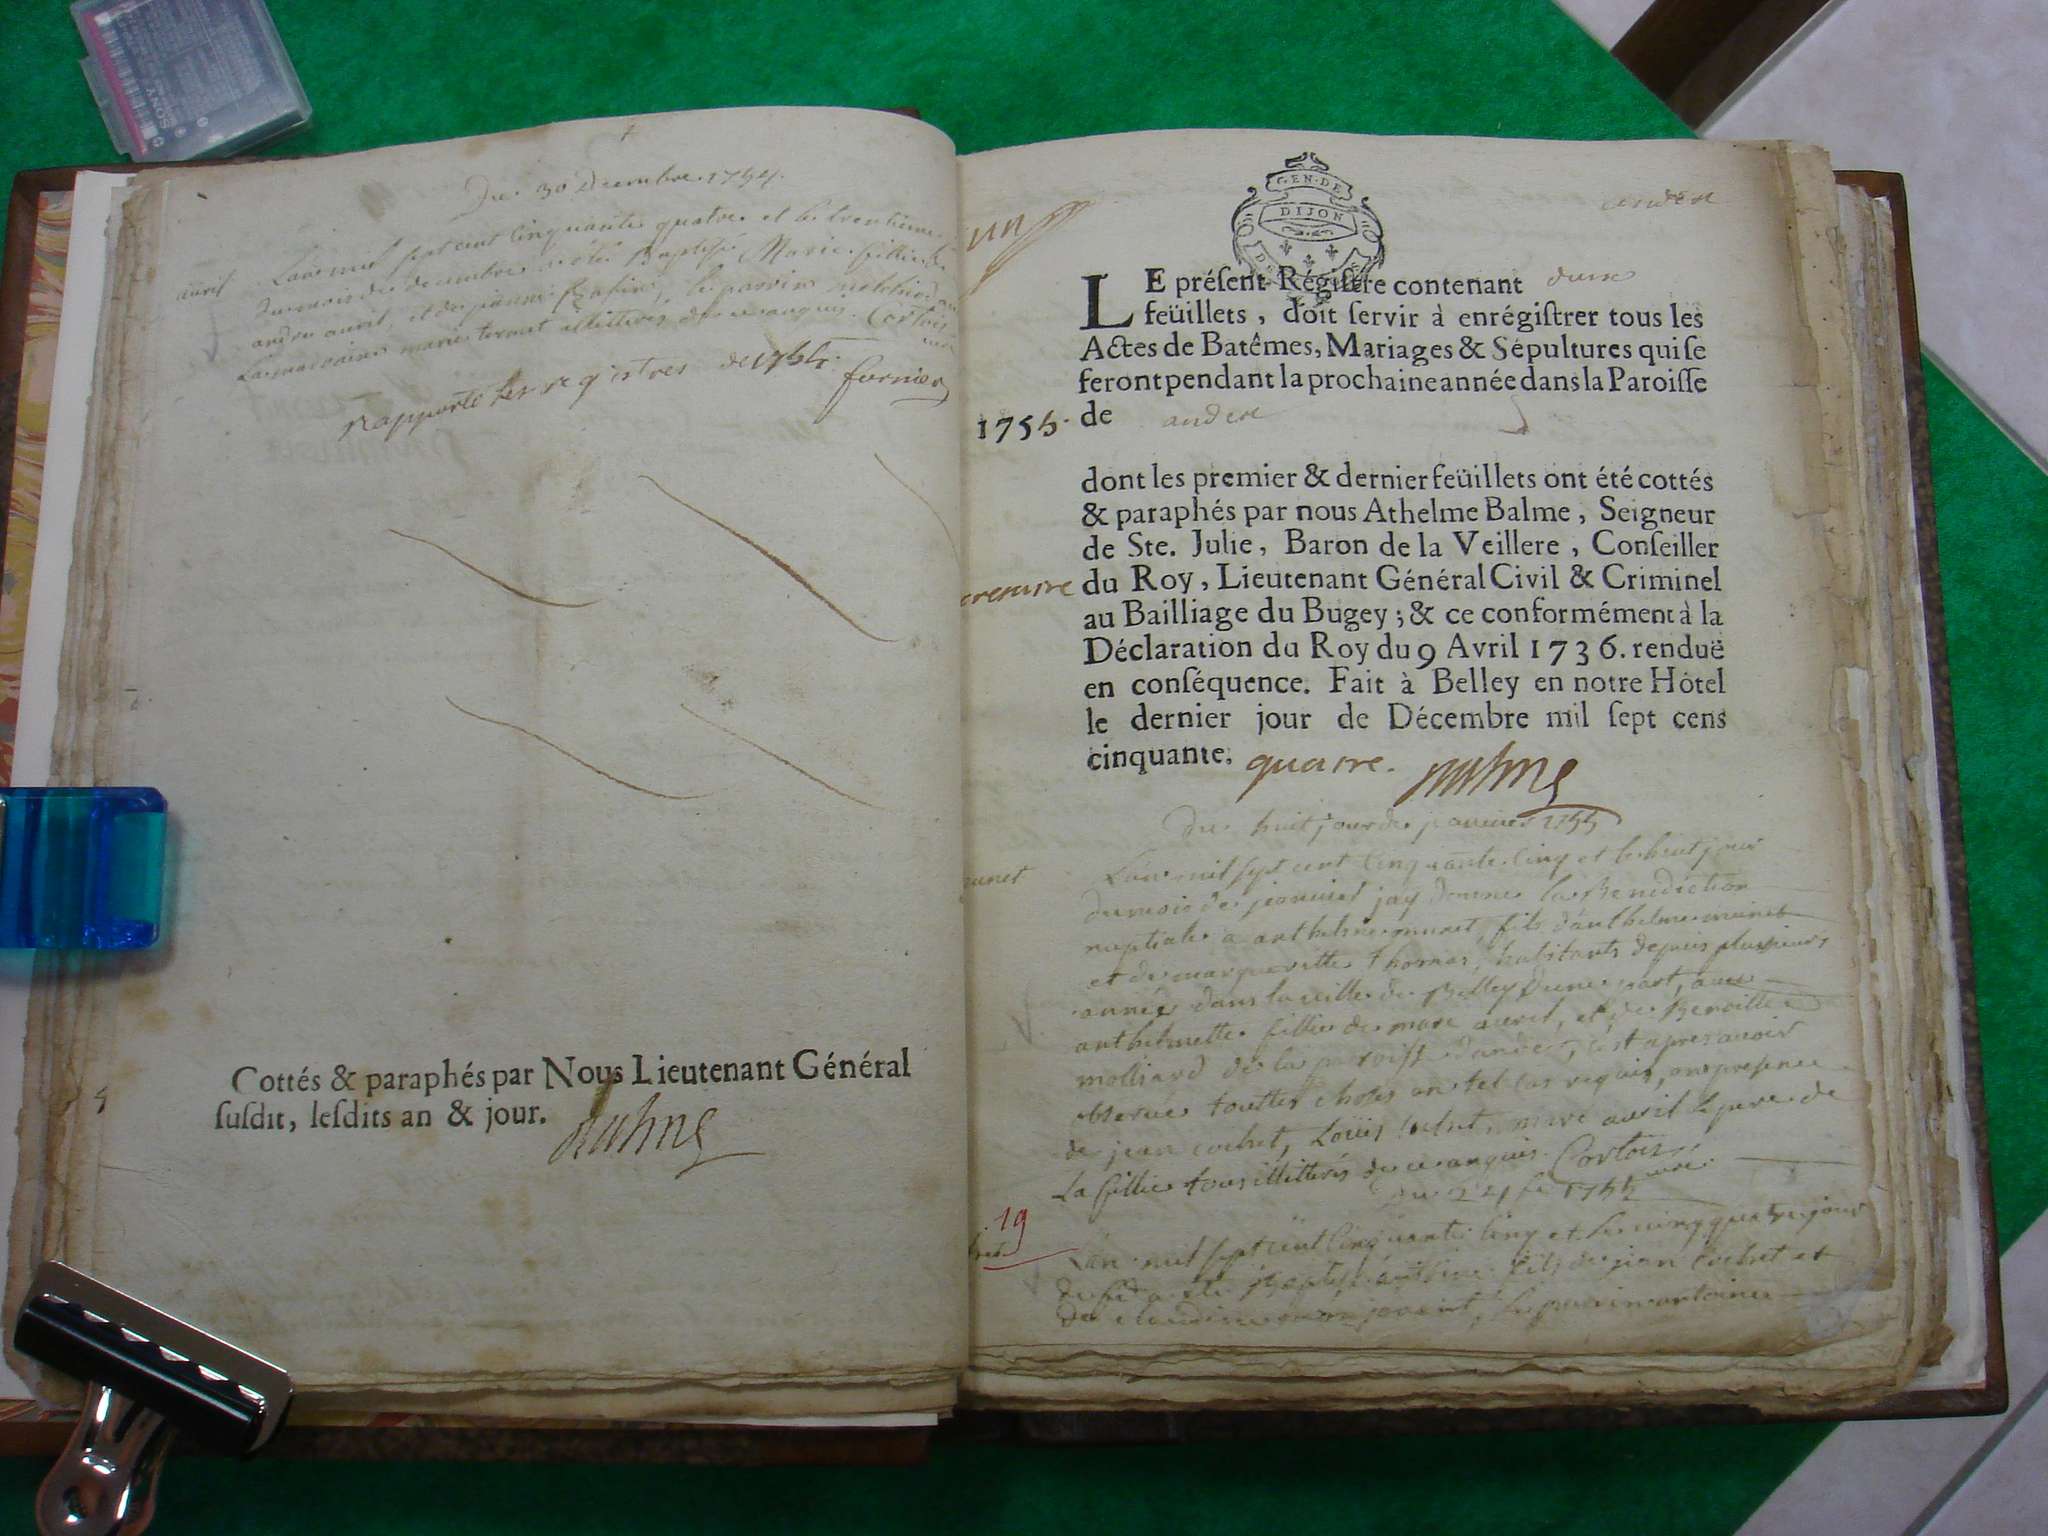 SONY
Du 30 decembre 1754.
avril
L'an mil sept cent cinquante quatre et le trentieme
du mois de decembre a été Baptisé Marie fillie de
andre avril, et de jeanne le parrin melchior
La marraine marie illitteres de ce enquis. Cortois
curé
rapporté les registres de 1754. fornier
Cottés & paraphés par Nous Lieutenant Général
susdit, lesdits an & jour.
GEN. DE
DIJON
andert
un
LE présent Régistre contenant
feüillets, doit servir à enrégistrer tous les
Actes de Batêmes, Mariages & Sépultures qui se
feront pendant la prochaine année dans la Paroisse
1755. de andert
dont les premier & dernier feüillets ont été cottés
& paraphés par nous Athelme Balme, Seigneur
de Ste. Julie, Baron de la Veillere, Conseiller
du Roy, Lieutenant Général Civil & Criminel
au Bailliage du Bugey; & ce conformément à la
Déclaration du Roy du 9 Avril 1736. renduë
en conséquence. Fait à Belley en notre Hôtel
le dernier jour de Décembre mil sept cens
cinquante. quatre.
Du huit jour de janvier 1755
L'an mil sept cent cinquante cinq et le huit jour
du mois de janvier jay donne la Benediction
nuptiale a anthelme munet fils d'anthelme munet
et de margueritte Thomas, habitants depuis plusieurs
années dans la ville de Belley Dune part, avec
anthelmette fillie de marc avril, et de Benoitte
molliard de la paroisse d'andert, cest apres avoir
observé touttes choses en tel cas requis, en presence
de jean cochet, Louis cochet, marc avril le pere de
La fillie tous illitterés de ce enquis. Cortois curé.
Du 24 fe 1755
19
L'an mil sept cent cinquante cinq et le vingt quatre jour
de fe a été Baptisé fils de jean cochet et
de claudine le parrin antoine